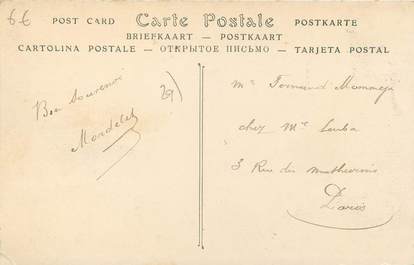 6€
POST CARD Carte Postale POSTKARTE
BRIEFKAART — POSTKAART
CARTOLINA POSTALE — ОТКРЫТОЕ ПИСЬМО — TARJETA POSTAL
Bon Souvenir
29)
Mr Fernand
chez Me Leuba
3 Rue des Mathurins
Paris